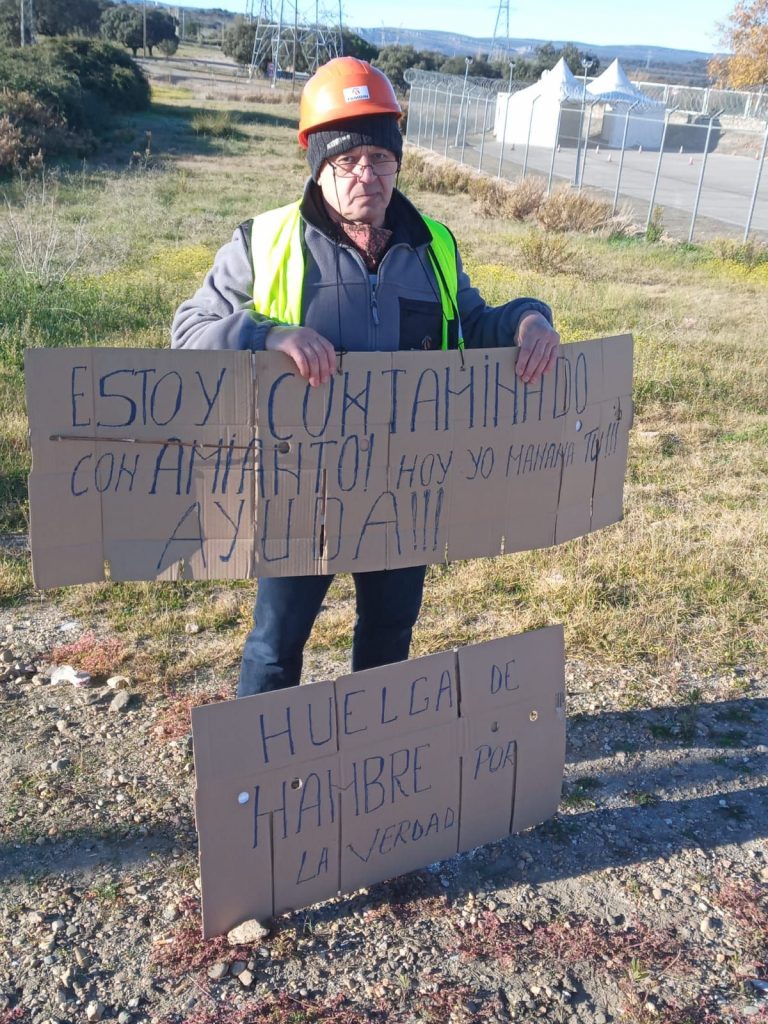 ESTOY CONTAMINADO
CON AMIANTO! HOY YO MAÑANA TU!!!
AYUDA!!!
HUELGA DE
HAMBRE POR
LA VERDAD